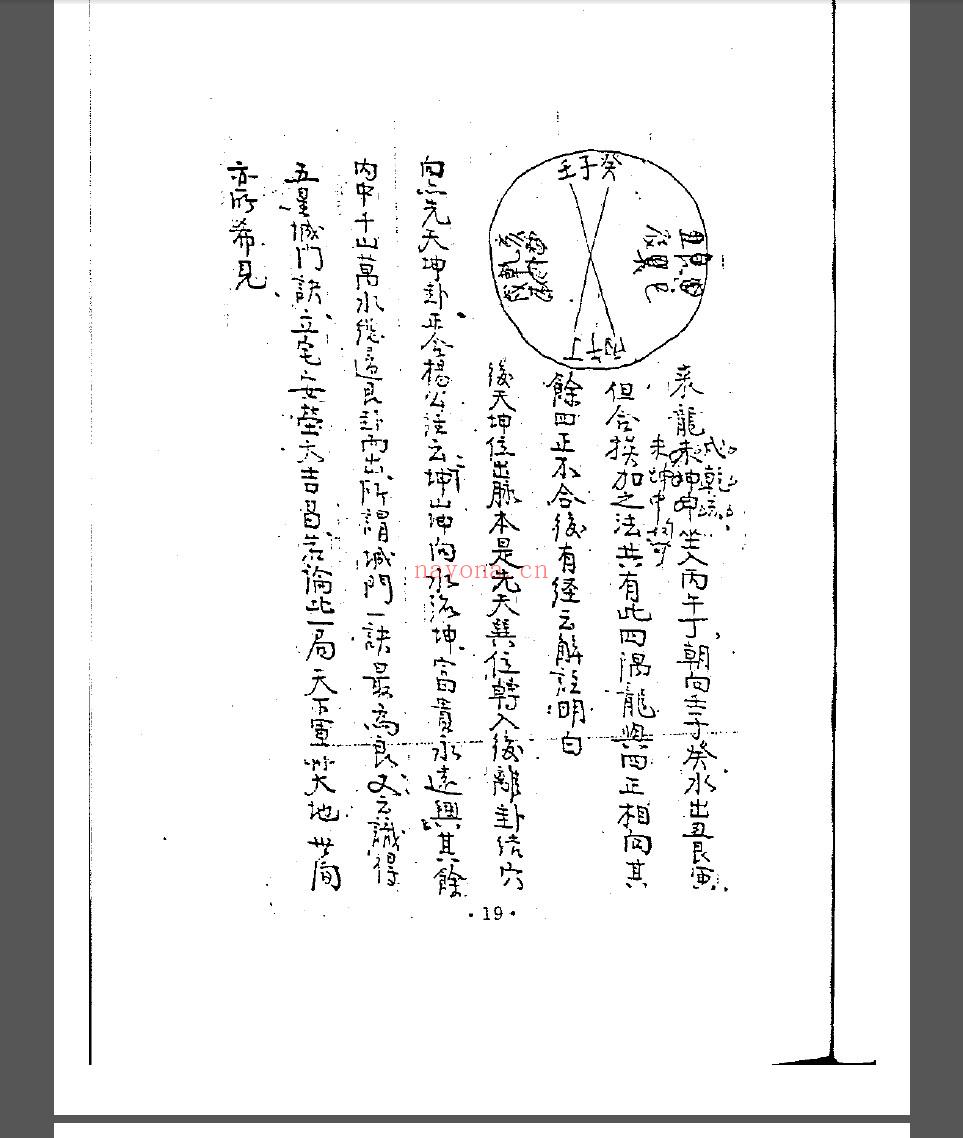 壬子癸
丙午丁
來龍未坤申坐入丙午丁朝向壬子癸水出丑艮寅
但合挨加之法共有此四隅龍與四正相向其
餘四正不合後有経云解註明白
後天坤位出脉本是先天巽位轉入後離卦结穴
向点先天坤卦正合楊公註云坤山坤向水流坤富貴永遠興其餘
内中千山萬水總還艮卦而出所謂城門一訣最為良又云識得
五星城門訣立宅安塋大吉昌若論此一局天下軍 地 世間
亦所希見
nayona.cn
·19·